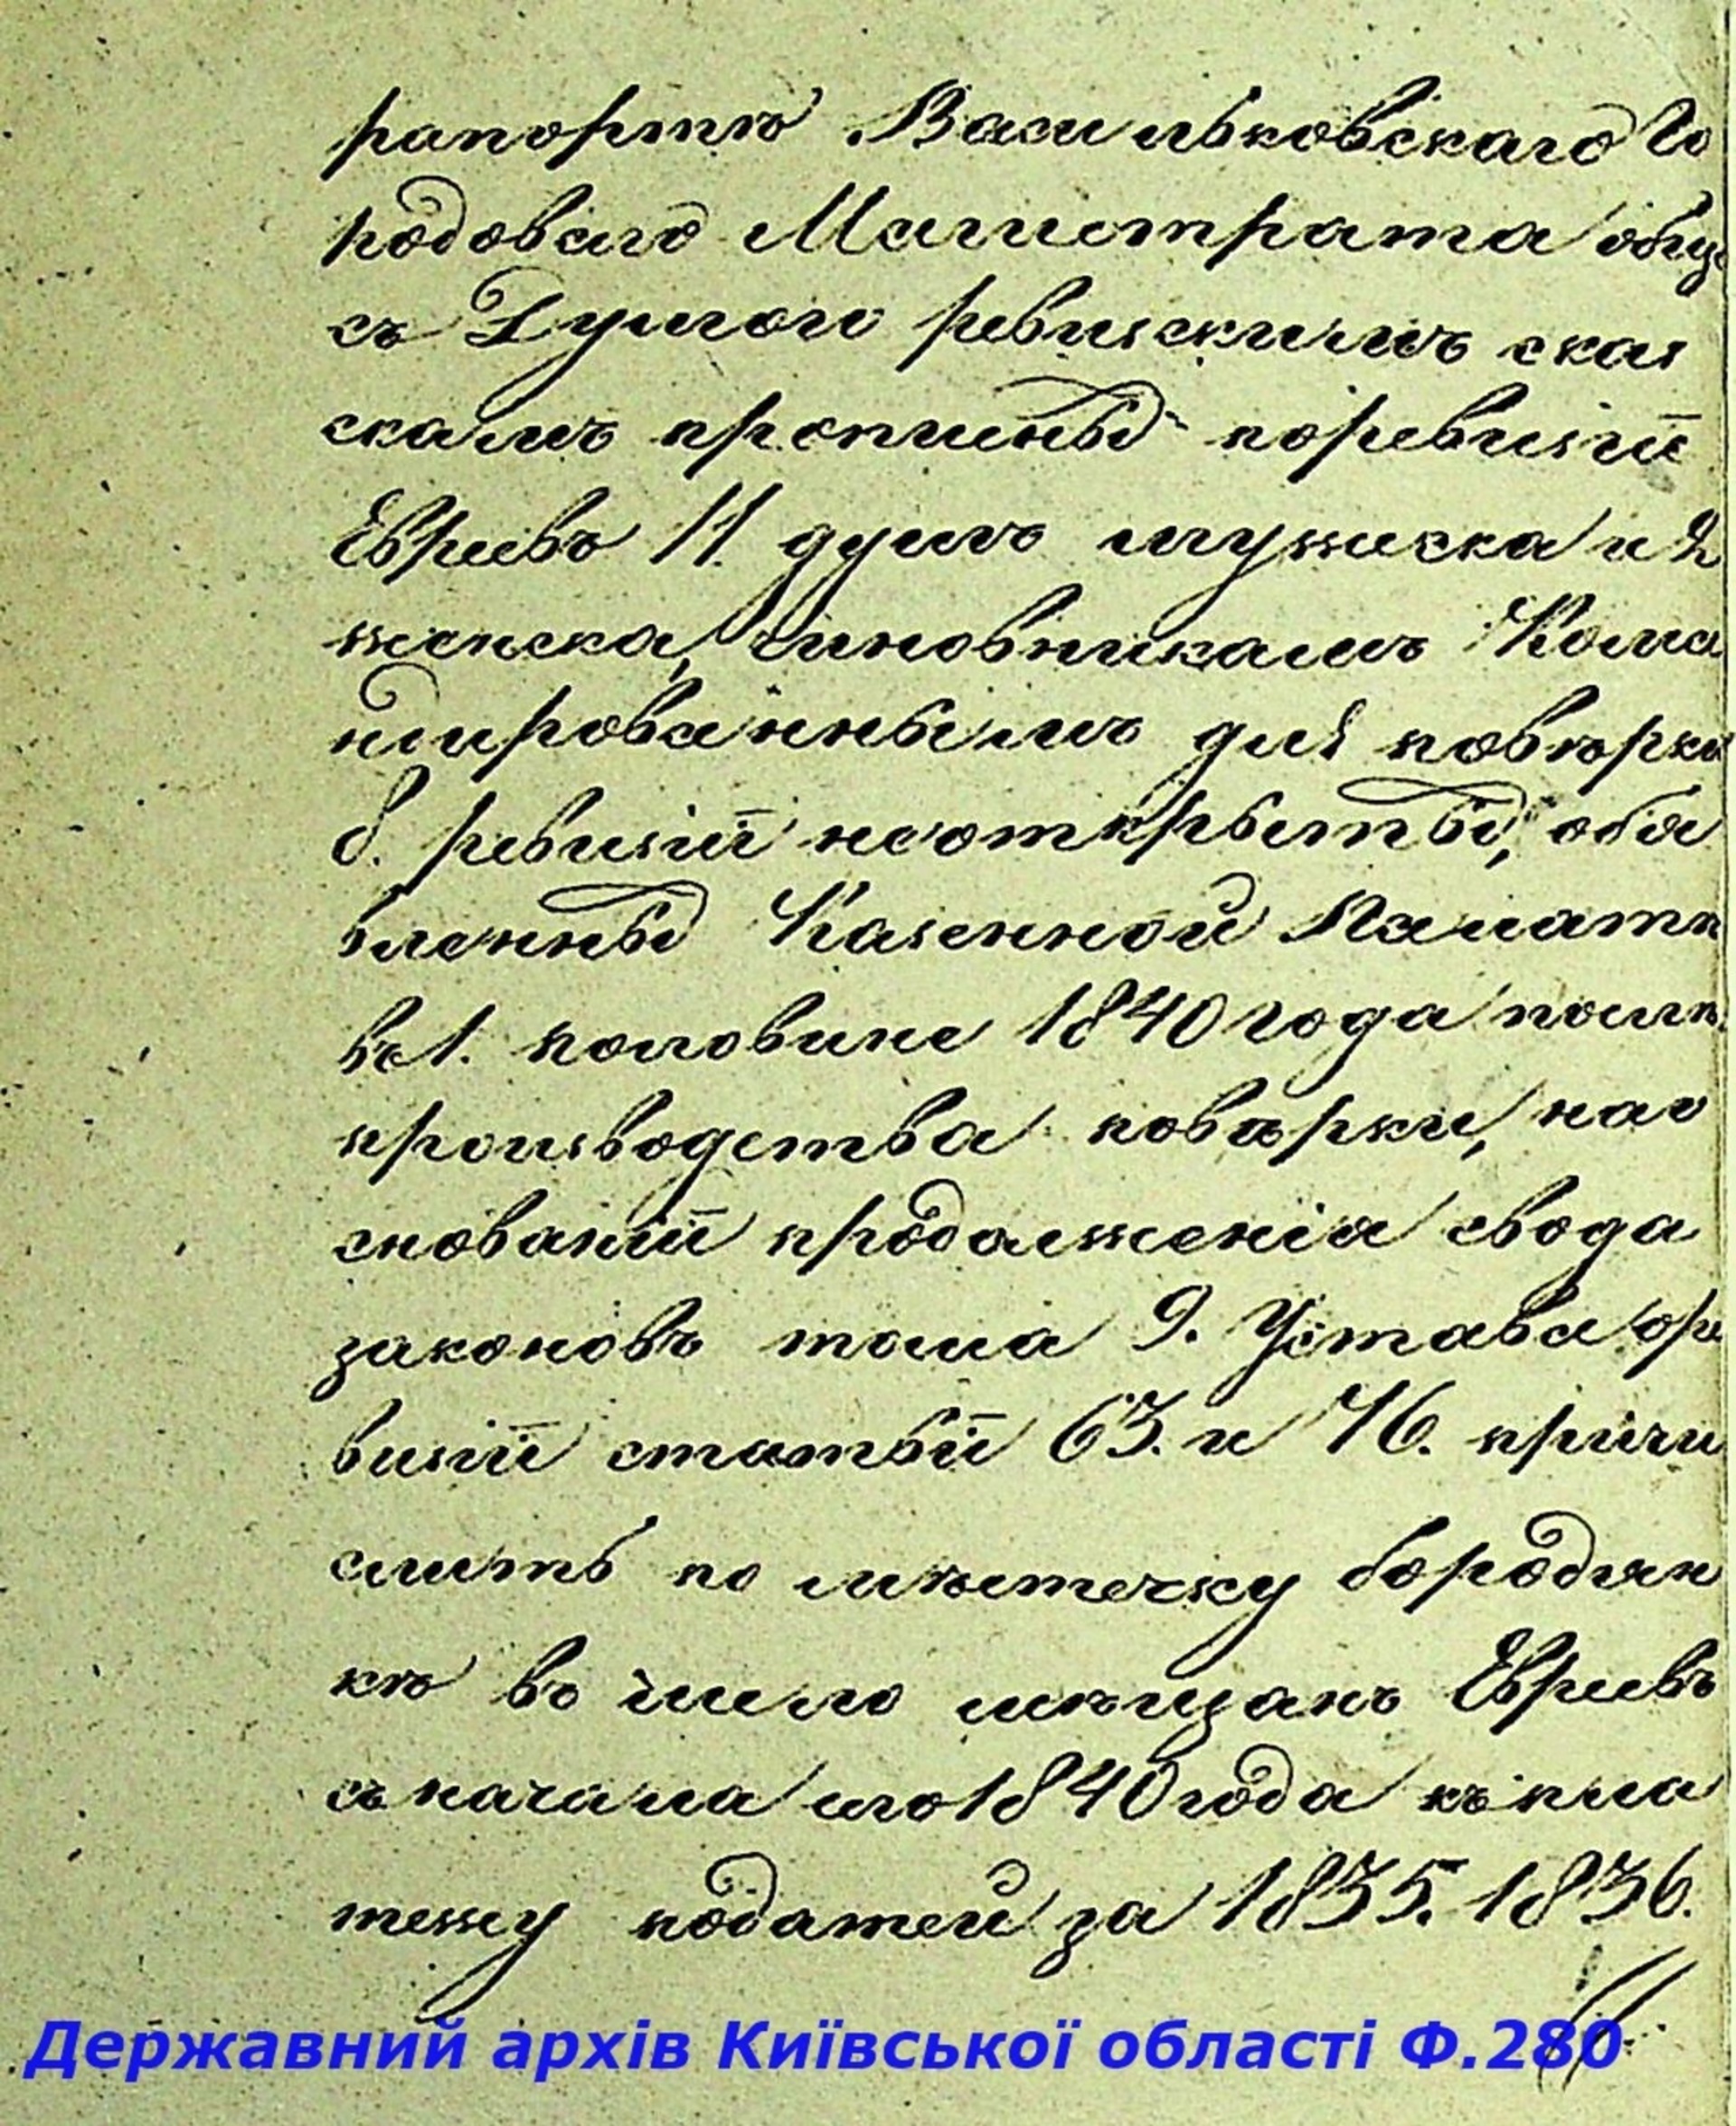 рапортѣ Васильковскаго Го
родоваго Магистрата обще
съ Думою ревизскимъ сказ
скамъ прописныхъ поревизіи
Евреевъ 11. душъ мужеска и 2
женска, чиновникамъ Кома
ндированнымъ для повѣрки
8. ревизіи неоткрытыхъ, объя
вленныхъ Казенной Палатѣ
въ 1. половине 1840 года послѣ
производства повѣрки, нао
снованіи продолженія свода
законовъ тома 9. Устава оре
визіи статьи 63. и 76. причи
слить по мѣстечку бородян
кѣ въ число мѣщанъ Евреевъ
съ начала сего 1840 года къ пла
тежу податей за 1835. 1836.
Державний архів Київської області Ф.280